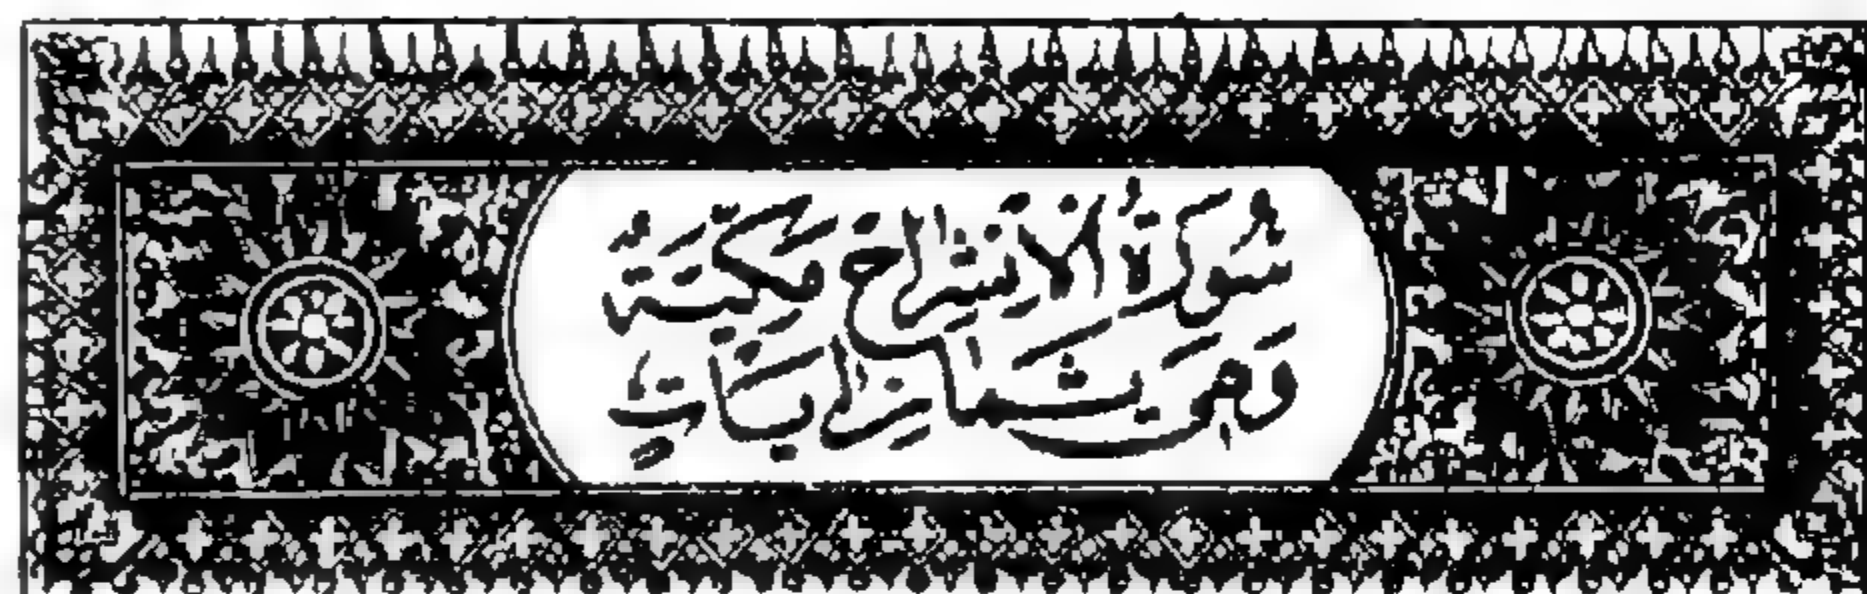 سُورَةُ الْاَنْشِرَاحِ مَكِّيَّةٌ
وَهِىَ ثَمَانِ اٰيَاتٍ